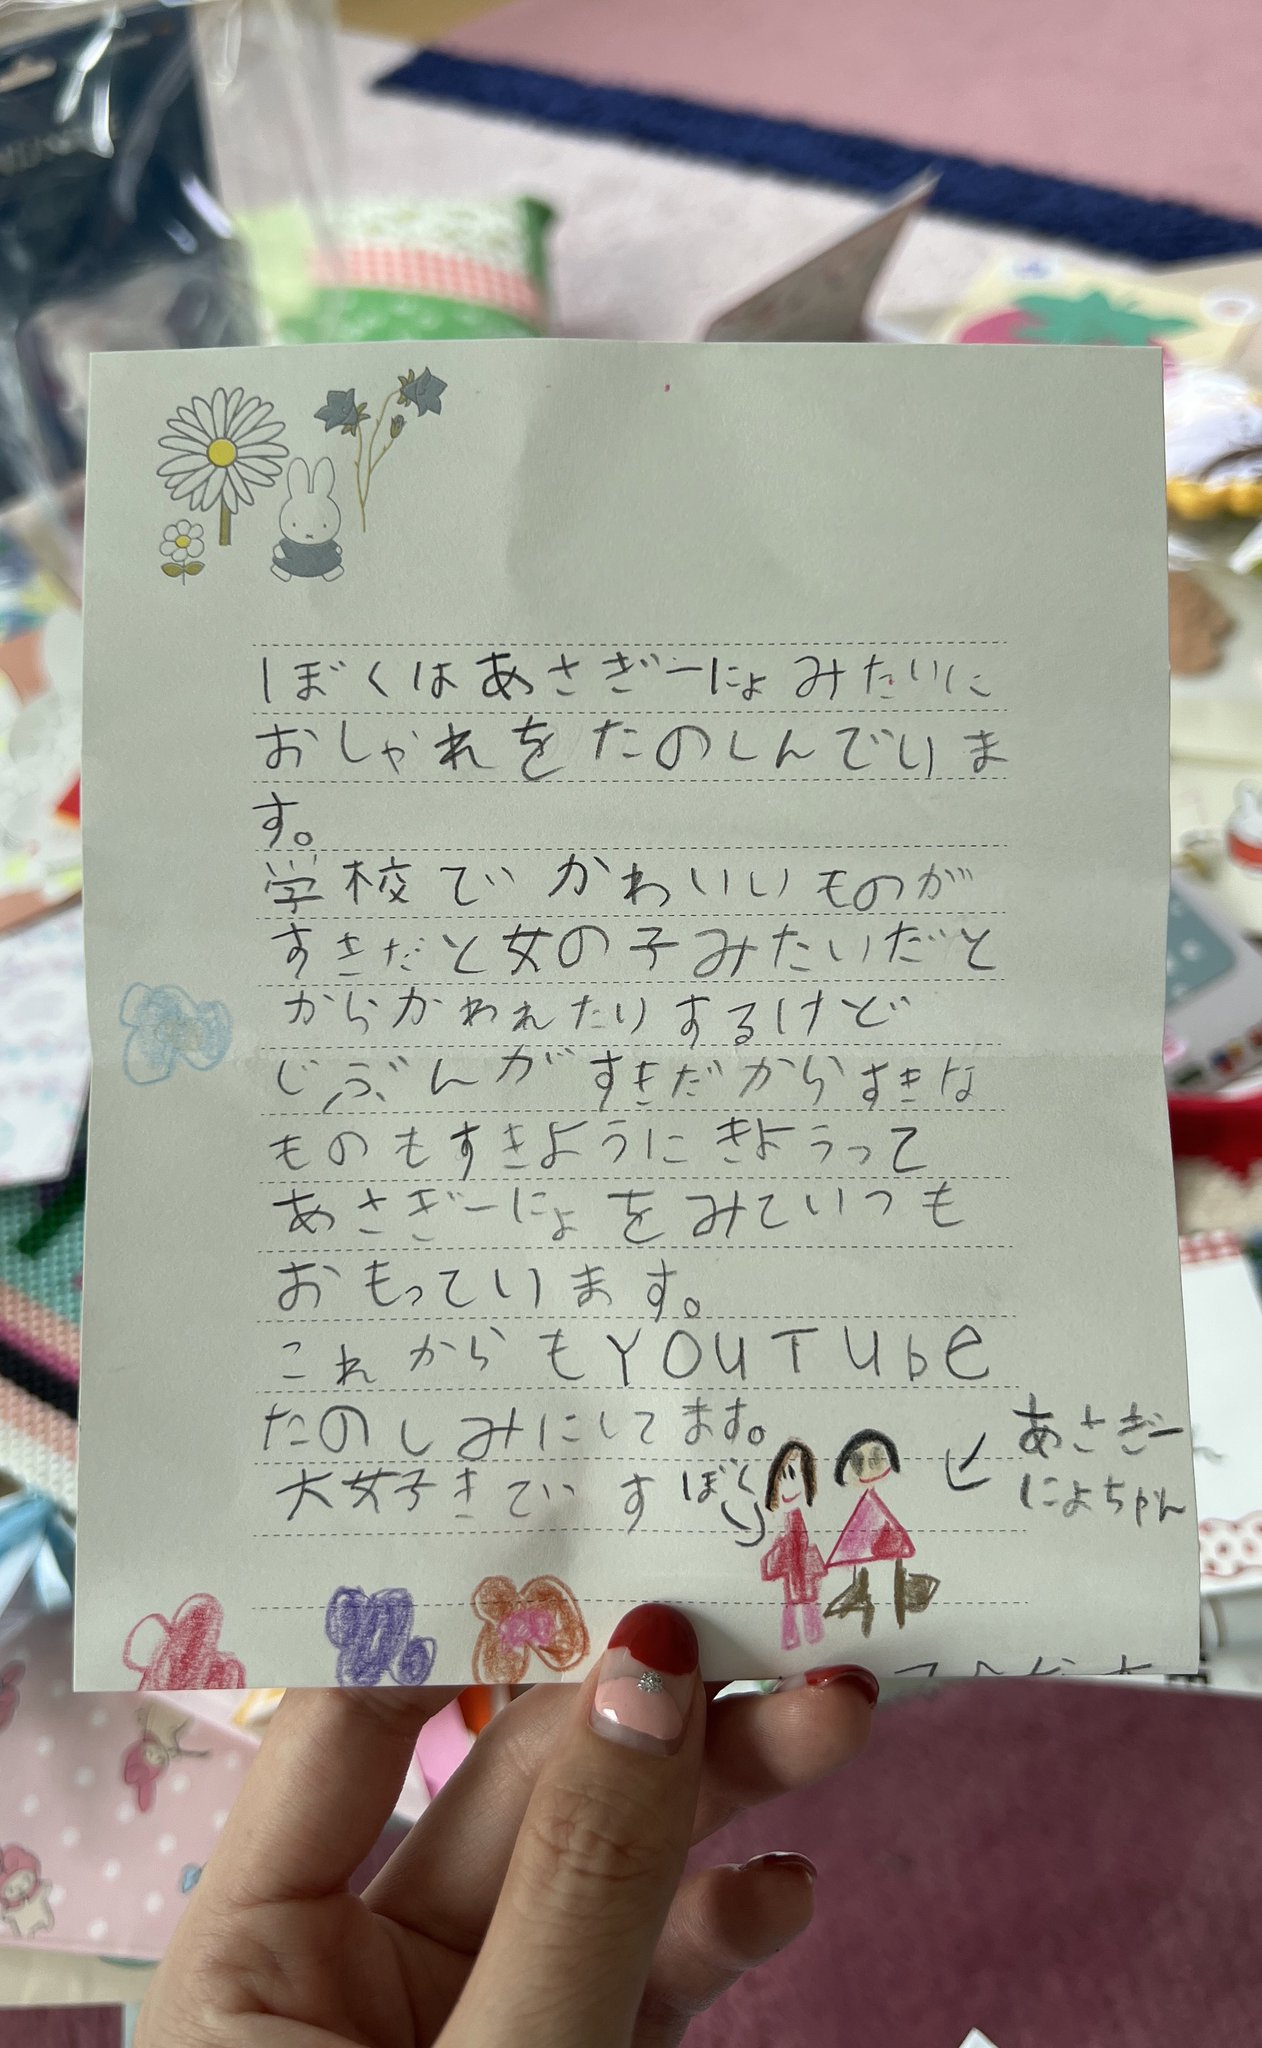 ぼくはあさぎーにょみたいに
おしゃれをたのしんでいま
す。
学校でかわいいものが
すきだと女の子みたいだと
からかわれたりするけど
じぶんがすきだからすきな
ものもすきようにきようって
あさぎーにょをみていつも
おもっています。
これからもYOUTUbe
たのしみにしてます。
大好きです
ぼく
あさぎー
にょちゃん